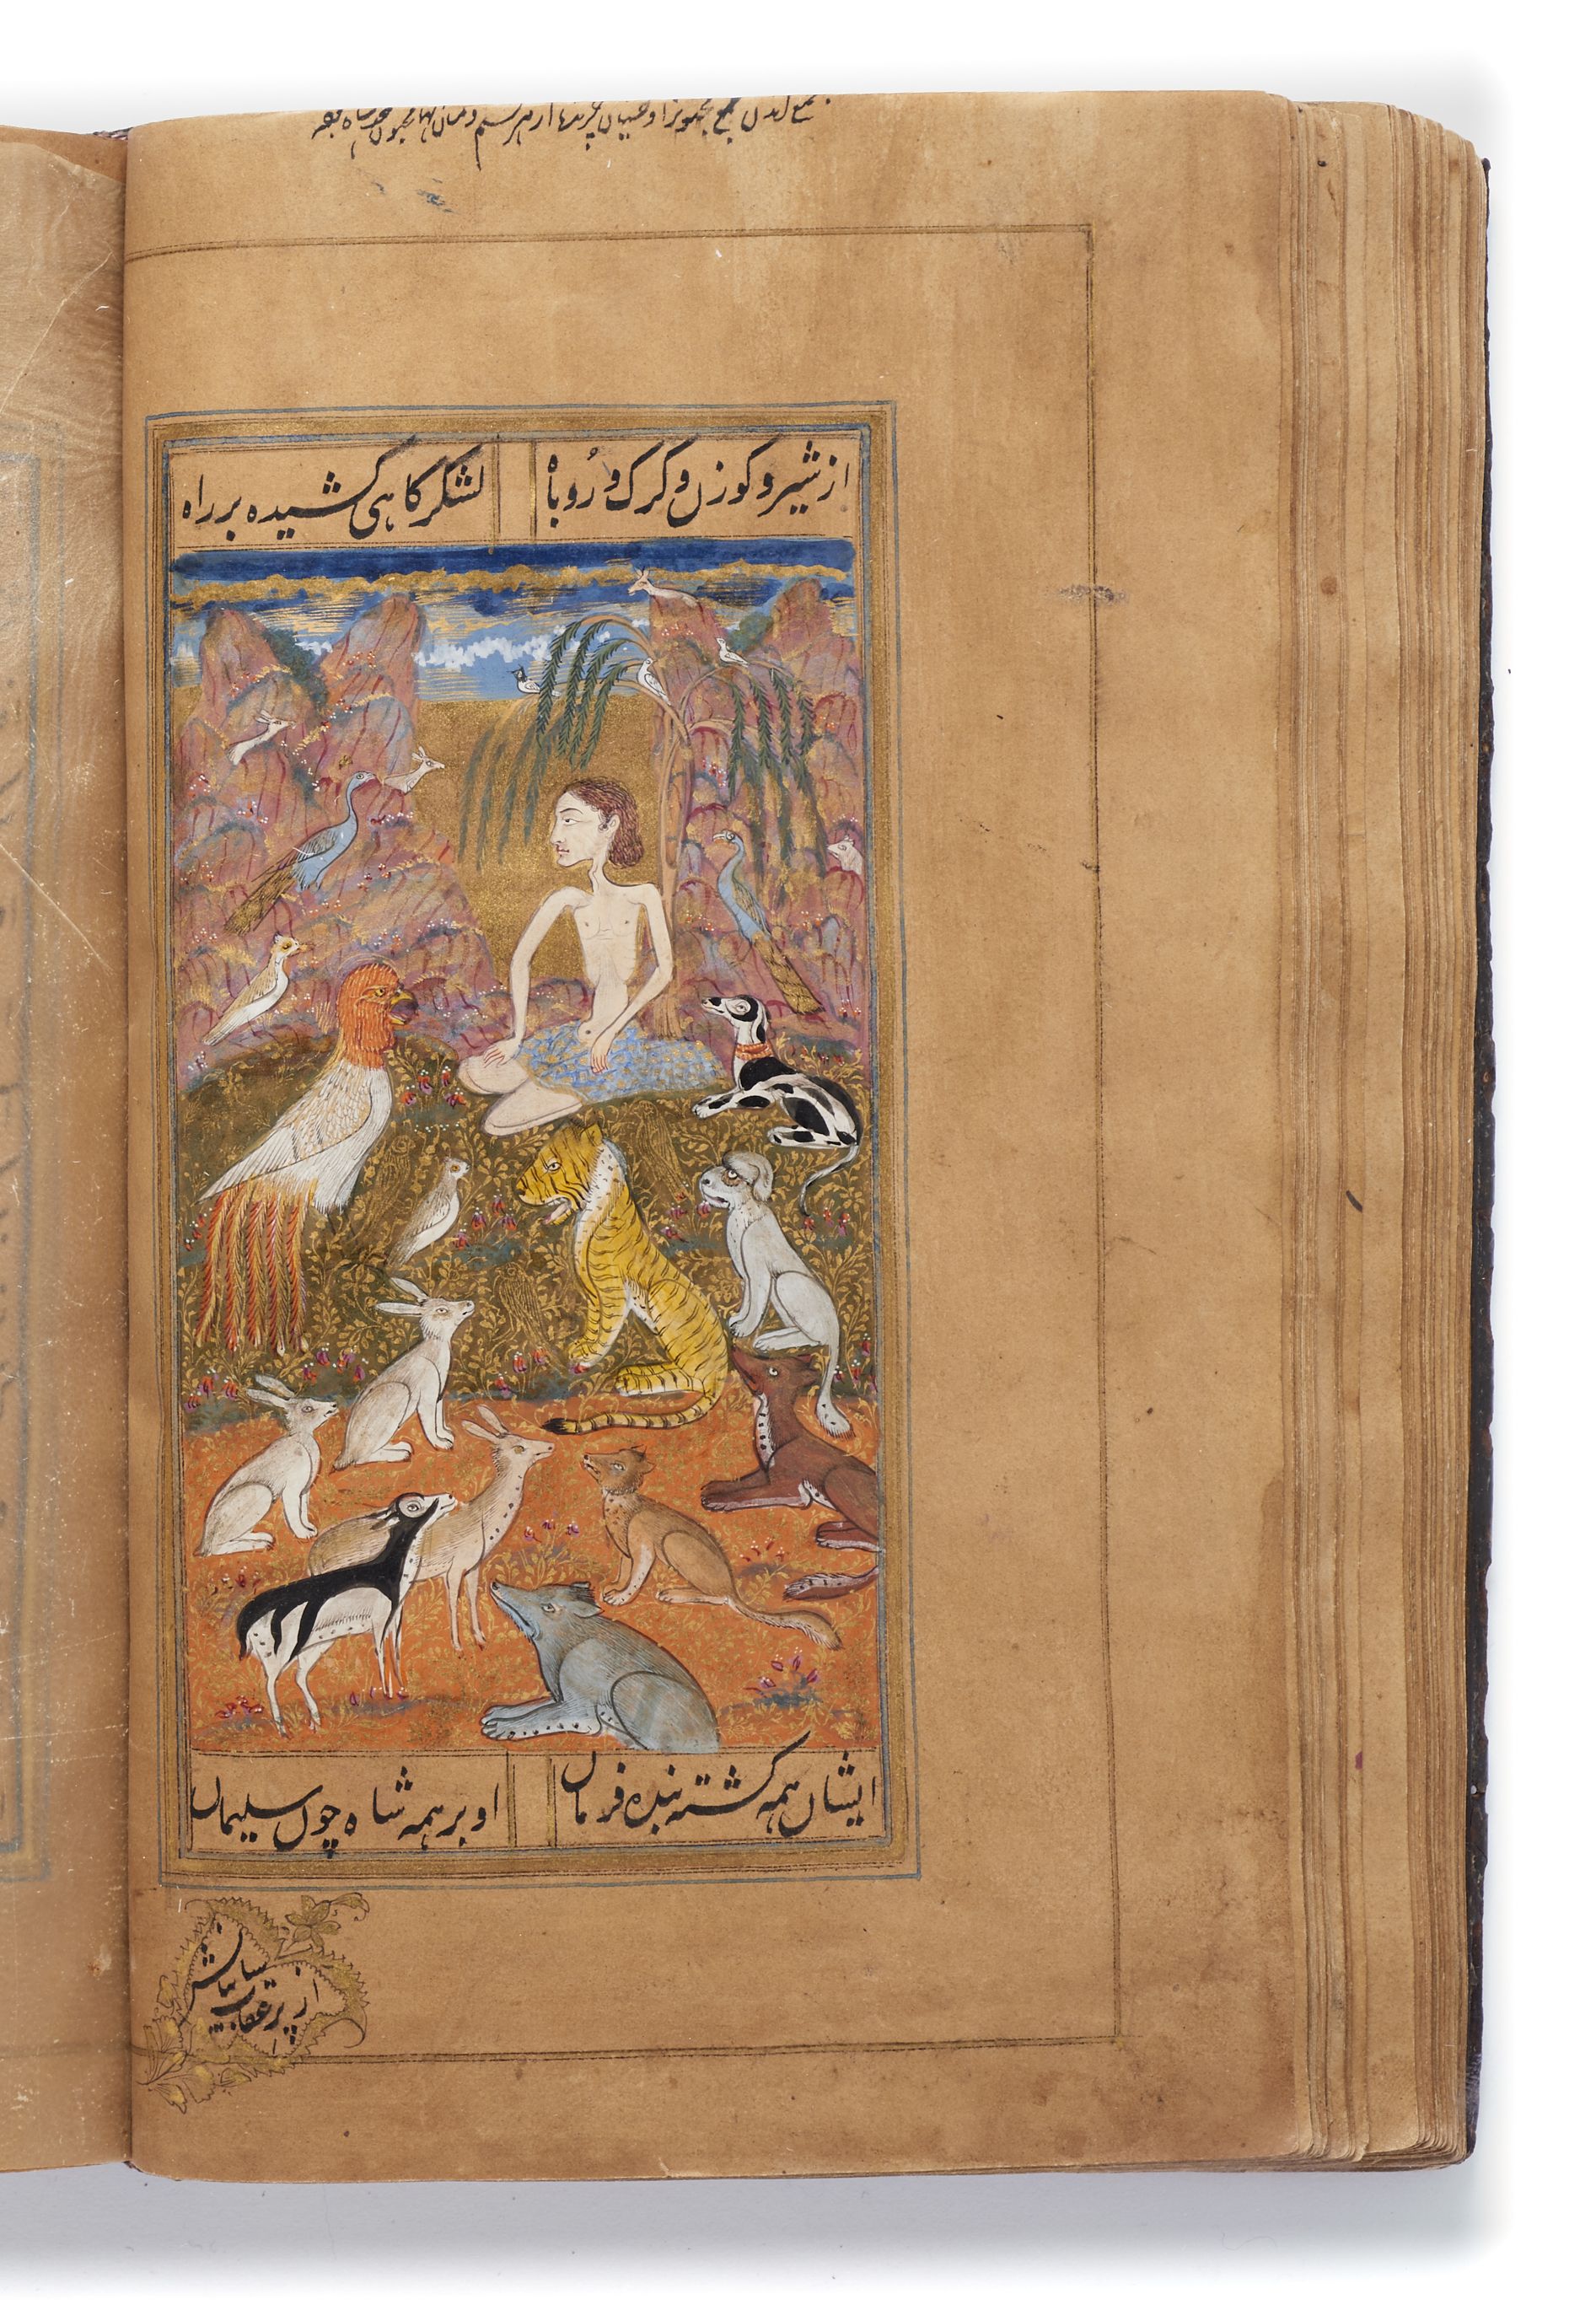 از شیر و کوزن و کرک و رُوباه
لشکر کاهی کشیده بر راه
ایشان همه کشته بنده فرمان
او بر همه شاه چون سلیمان
از پر عقاب سایبانش